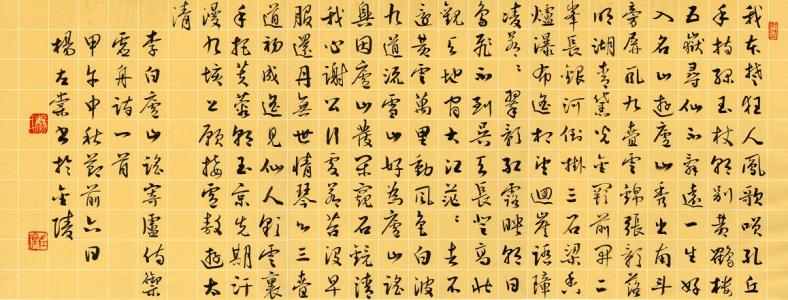 我本楚狂人鳳歌笑孔丘
手持綠玉杖朝別黃鶴樓
五嶽尋仙不辭遠一生好
入名山遊廬山秀出南斗
傍屏風九疊雲錦張影落
明湖青黛光金闕前開二
峯長銀河倒掛三石梁香
爐瀑布遙相望迴崖沓障
凌蒼〻翠影紅霞映朝日
鳥飛不到吳天長登高壯
觀天地間大江茫〻去不
還黃雲萬里動風色白波
九道流雪山好為廬山謠
興因廬山發閑窺石鏡清
我心謝公行處蒼苔沒早
服還丹無世情琴心三疊
道初成遙見仙人彩雲裏
手把芙蓉朝玉京先期汗
漫九垓上願接盧敖遊太
清
李白廬山謠寄盧侍御
虛舟詩一首
甲午中秋節前六日
楊棠書於金陵